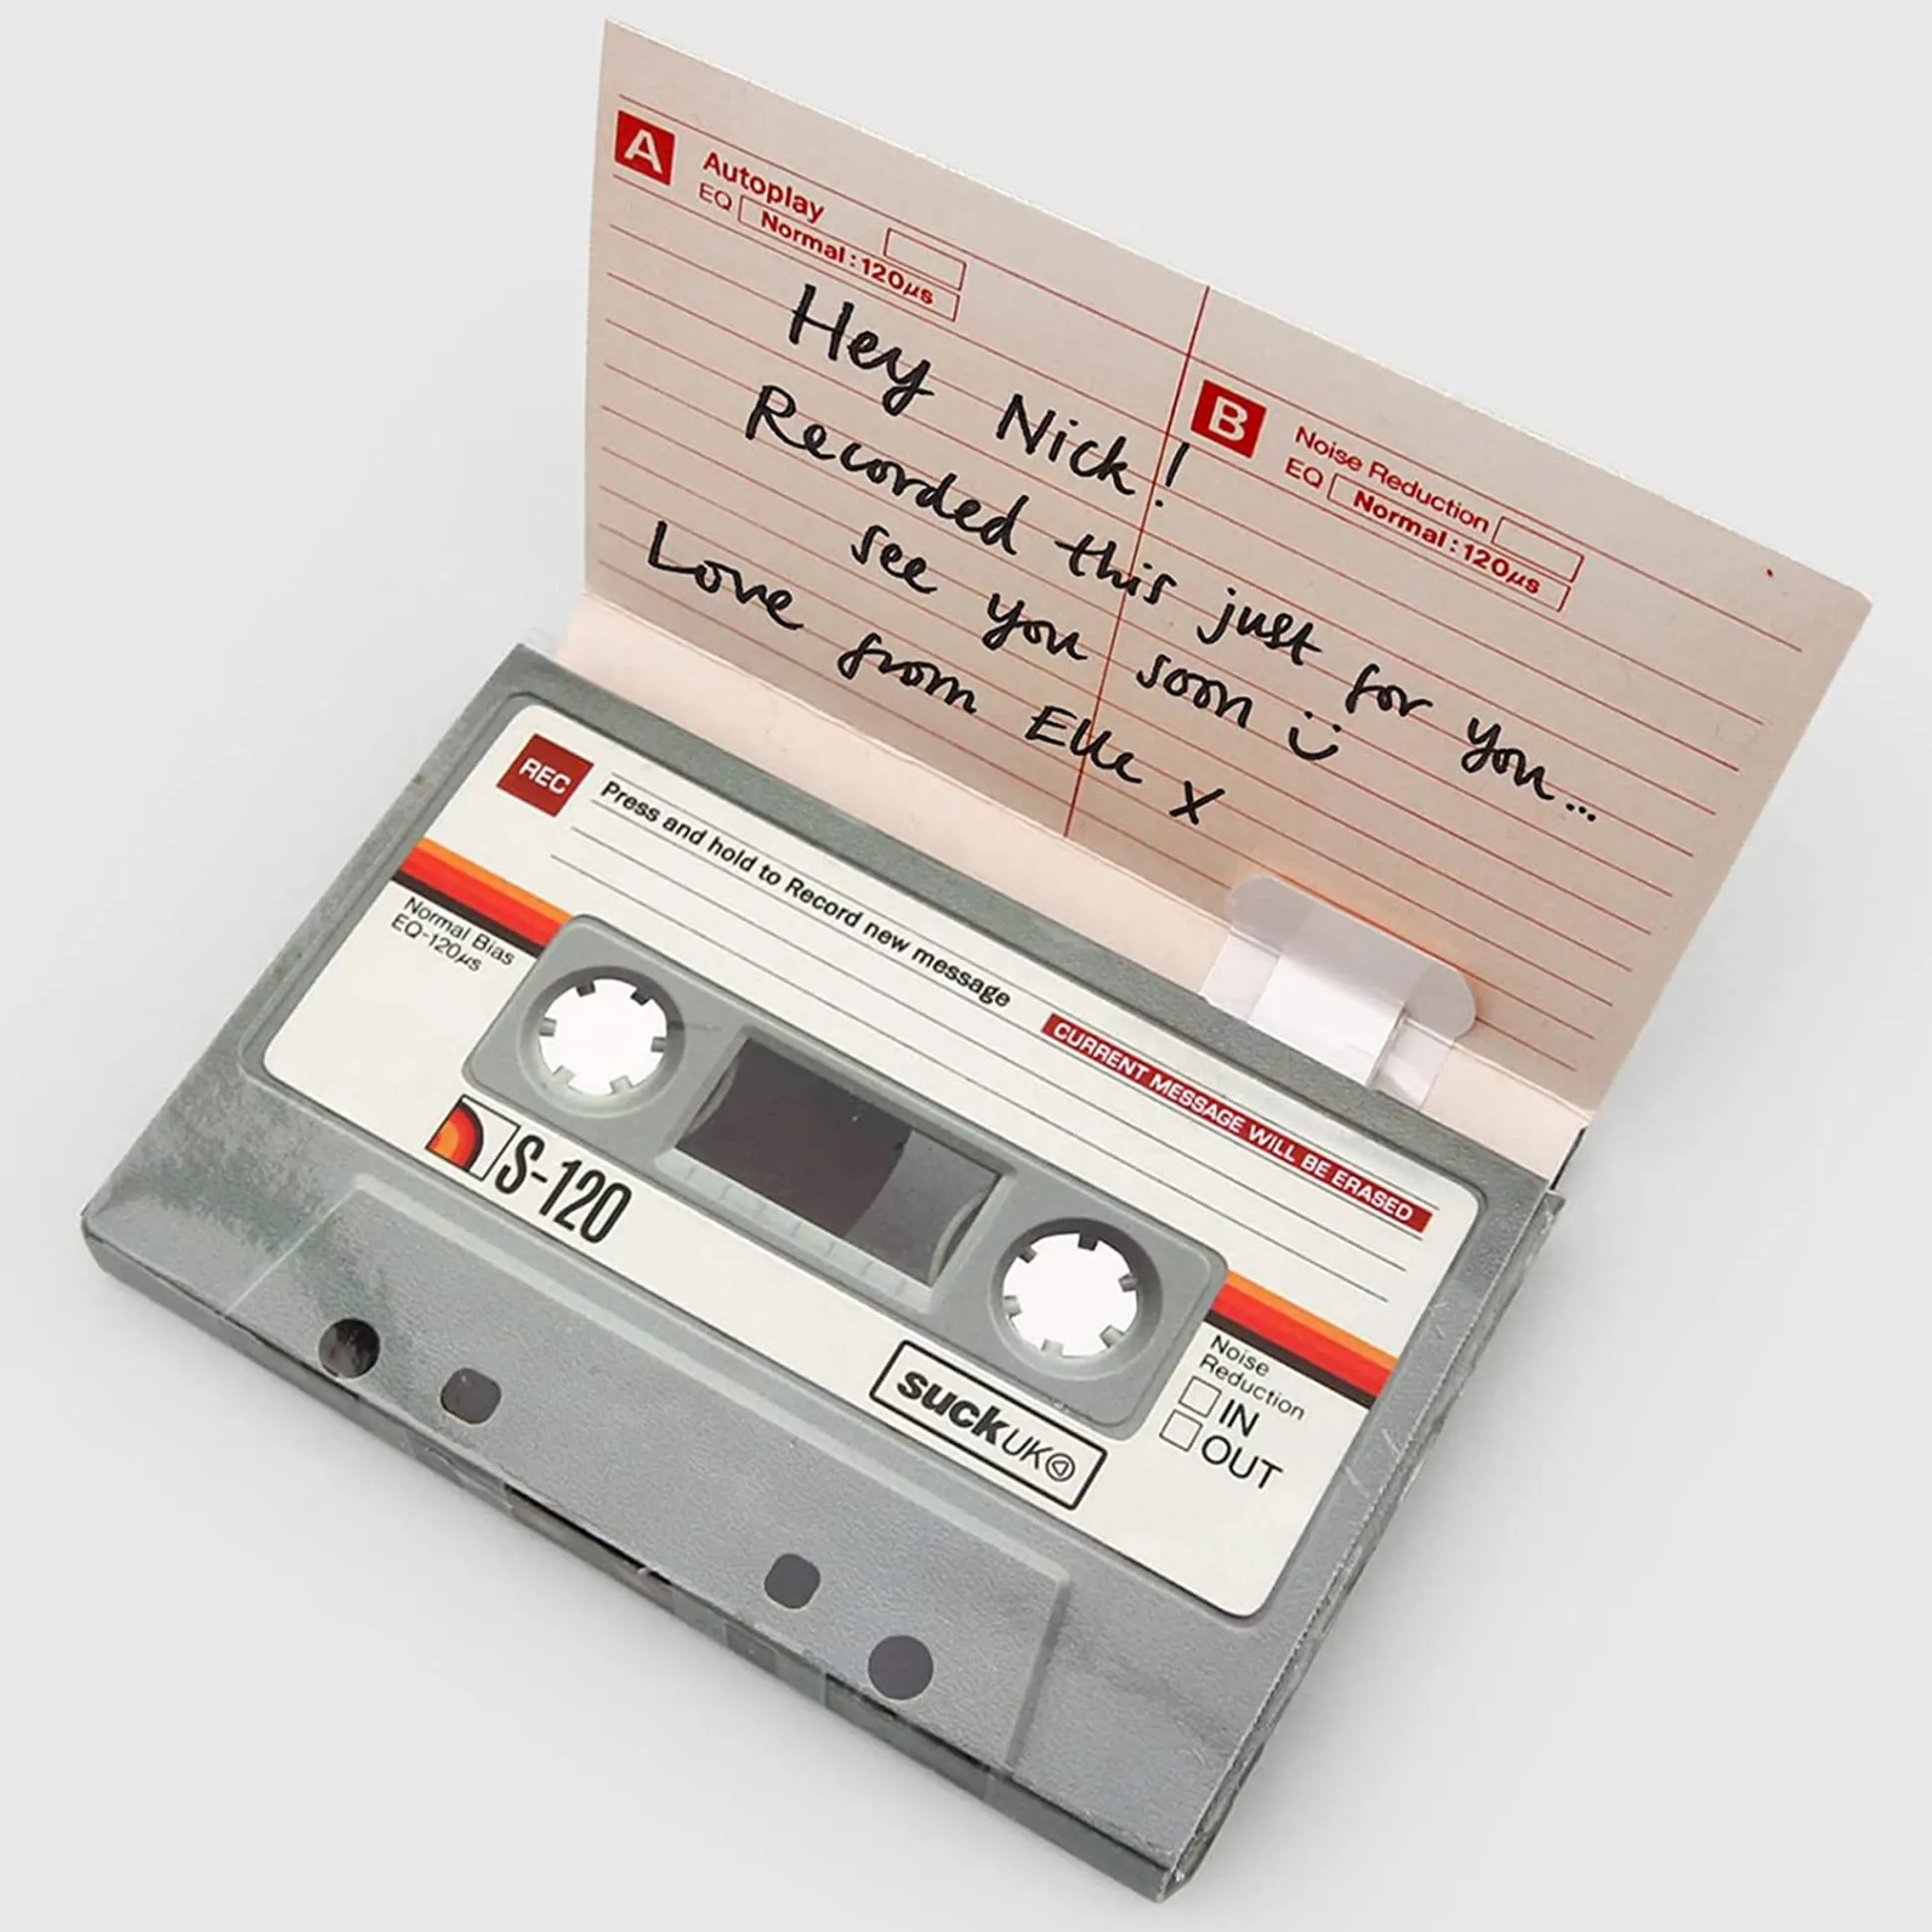 A
Autoplay
EQ Normal : 120µs
B
Noise Reduction
EQ Normal : 120µs
Hey Nick!
Recorded this just for you...
see you soon :)
Love from Elle X
REC
Press and hold to Record new message
CURRENT MESSAGE WILL BE ERASED
Normal Bias
EQ-120µs
S-120
suck UK
Noise
Reduction
IN
OUT